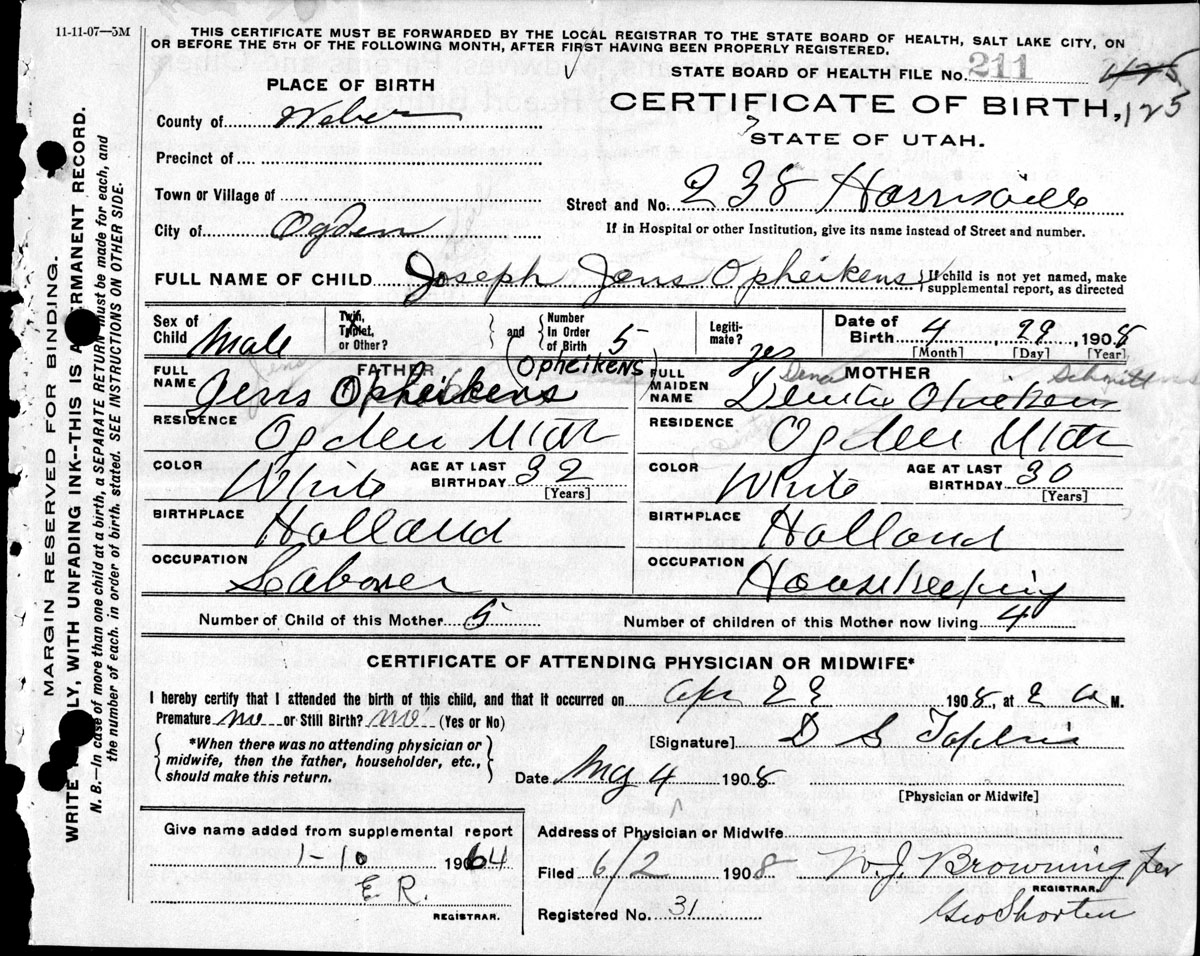 11-11-07—3M
THIS CERTIFICATE MUST BE FORWARDED BY THE LOCAL REGISTRAR TO THE STATE BOARD OF HEALTH, SALT LAKE CITY, ON
OR BEFORE THE 5TH OF THE FOLLOWING MONTH, AFTER FIRST HAVING BEEN PROPERLY REGISTERED.
STATE BOARD OF HEALTH FILE No. 211
PLACE OF BIRTH
CERTIFICATE OF BIRTH, 125
STATE OF UTAH.
County of Weber
Precinct of
Town or Village of
Street and No. 238 Harrisville
City of Ogden
If in Hospital or other Institution, give its name instead of Street and number.
FULL NAME OF CHILD Joseph Jens Opheikens { If child is not yet named, make
supplemental report, as directed
Sex of Child Male
Twin, Triplet, or Other?
and { Number in Order of Birth 5
Legitimate? yes
Date of Birth 4 29 1908
[Month] [Day] [Year]
FATHER
FULL NAME Jens Opheikens (OPHEIKENS)
RESIDENCE Ogden Utah
COLOR White AGE AT LAST BIRTHDAY 32
[Years]
BIRTHPLACE Holland
OCCUPATION Laborer
MOTHER
FULL MAIDEN NAME Dena
RESIDENCE Ogden Utah
COLOR White AGE AT LAST BIRTHDAY 30
[Years]
BIRTHPLACE Holland
OCCUPATION Housekeeping
Number of Child of this Mother 5 Number of children of this Mother now living 4
CERTIFICATE OF ATTENDING PHYSICIAN OR MIDWIFE*
I hereby certify that I attended the birth of this child, and that it occurred on Apr 29 1908, at 2 a M.
Premature no or Still Birth? no (Yes or No)
*When there was no attending physician or
midwife, then the father, householder, etc.,
should make this return.
[Signature] D S
Date May 4 1908
[Physician or Midwife]
Give name added from supplemental report
1-10 1964
E R.
REGISTRAR.
Address of Physician or Midwife
Filed 6/2 1908 W. J. Browning
REGISTRAR.
Registered No. 31 Geo Shorten
MARGIN RESERVED FOR BINDING.
WRITE PLAINLY, WITH UNFADING INK--THIS IS A PERMANENT RECORD.
N. B.—In case of more than one child at a birth, a SEPARATE RETURN must be made for each, and
the number of each, in order of birth, stated. SEE INSTRUCTIONS ON OTHER SIDE.